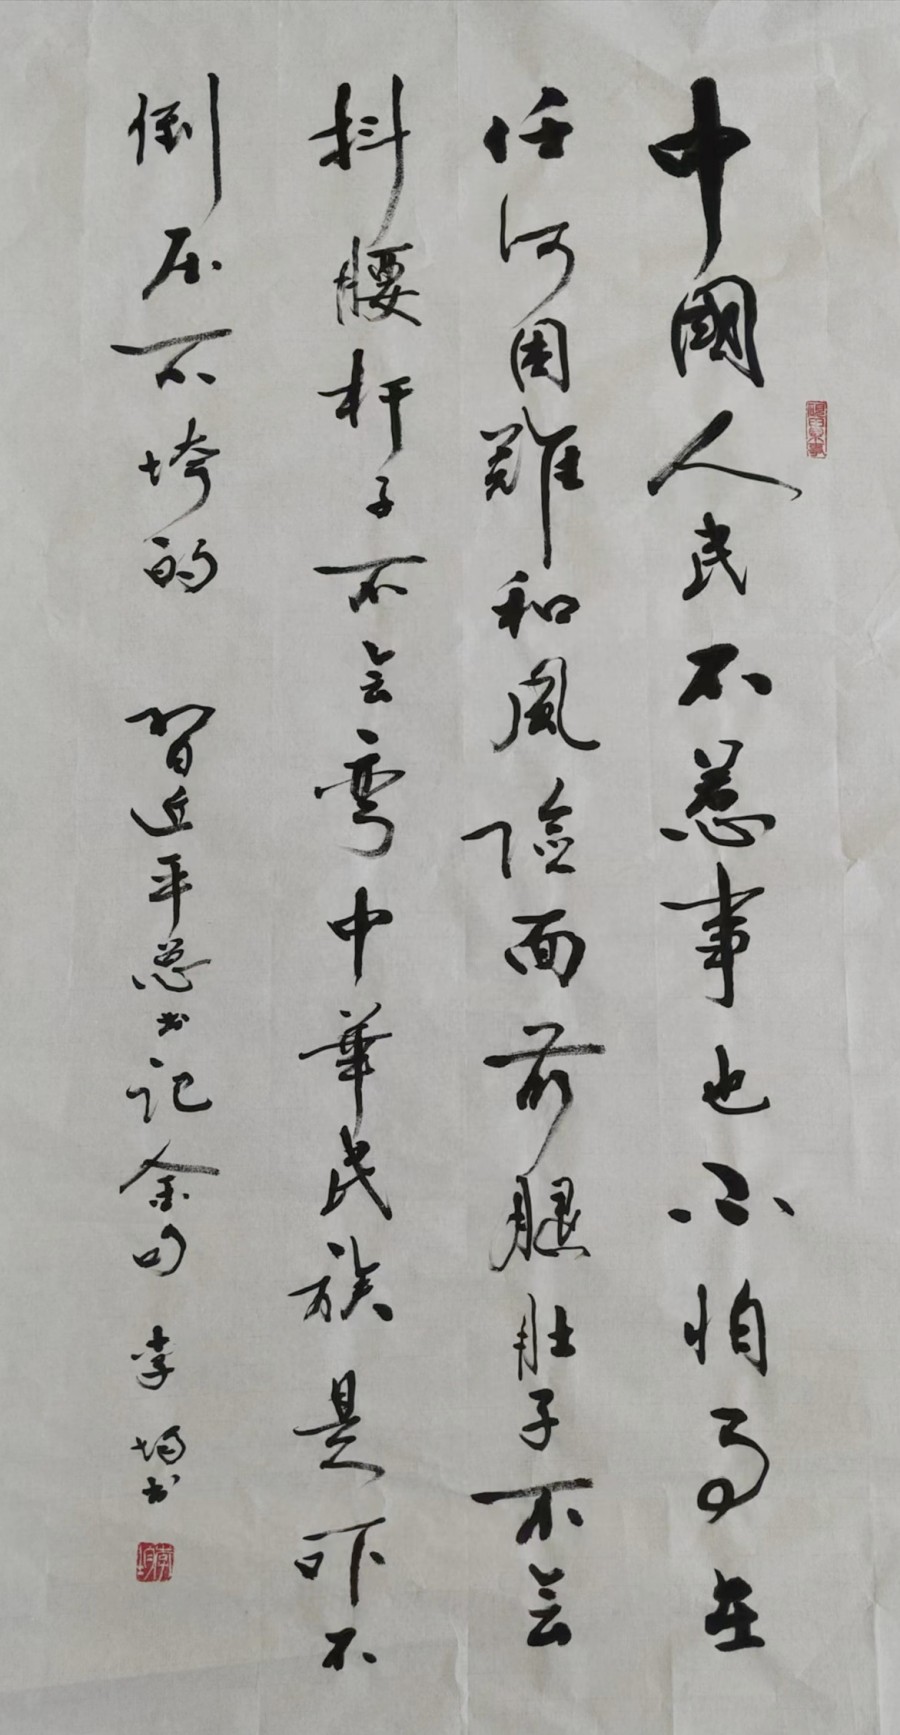 中國人民不惹事也不怕事在
任何困難和風险面前腿肚子不会
抖腰杆子不会弯中華民族是吓不
倒压不垮的
習近平总书记金句
李均书